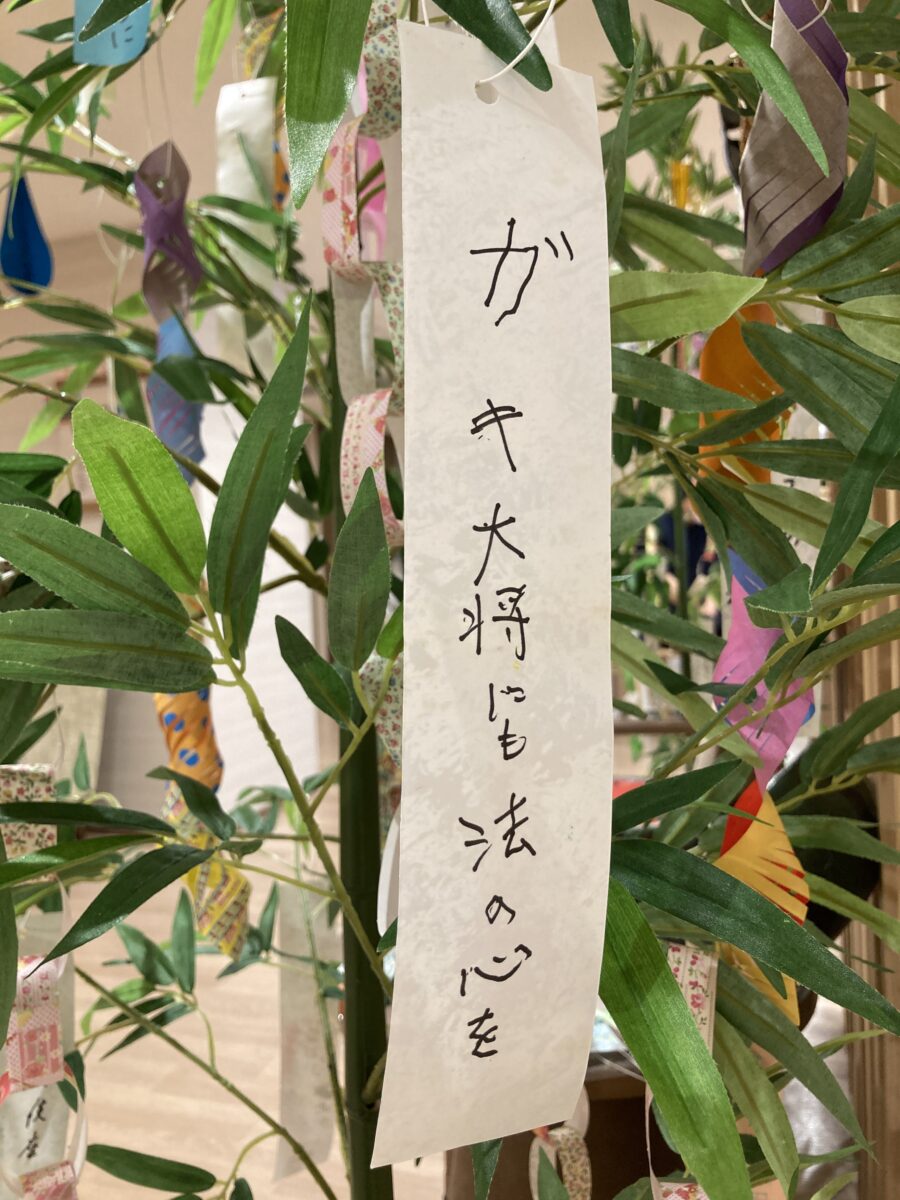 ガキ大将にも法の心を
に